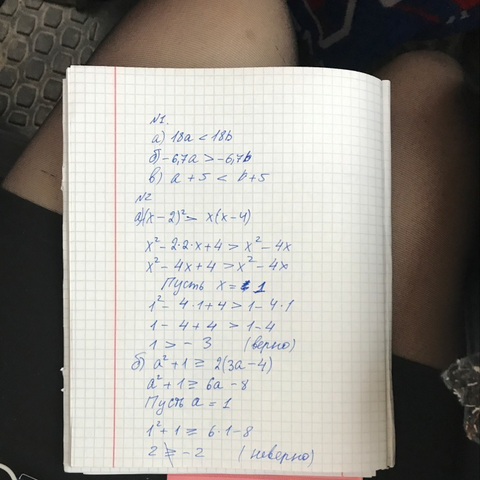 №1.
а) 18a < 18b
б) -6,7a > -6,7b
в) a + 5 < b + 5
№2
а) (x - 2)² > x(x - 4)
x² - 2·2·x + 4 > x² - 4x
x² - 4x + 4 > x² - 4x
Пусть x = 1
1² - 4·1 + 4 > 1 - 4·1
1 - 4 + 4 > 1 - 4
1 > - 3 (верно)
б) a² + 1 ≥ 2(3a - 4)
a² + 1 ≥ 6a - 8
Пусть a = 1
1² + 1 ≥ 6·1 - 8
2 ≥ - 2 (неверно)